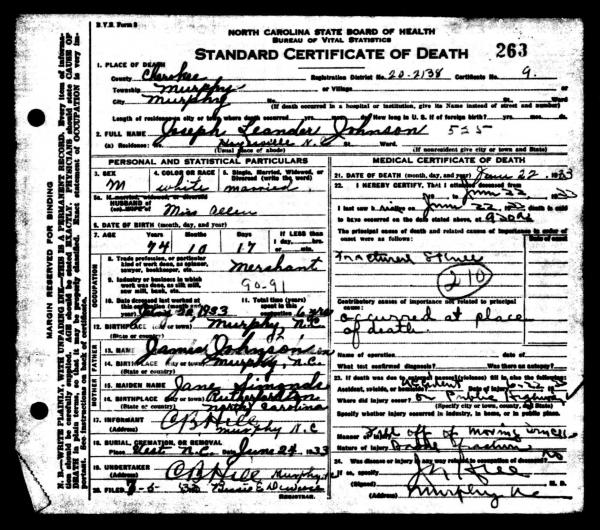 B.V.S. Form 8
NORTH CAROLINA STATE BOARD OF HEALTH
BUREAU OF VITAL STATISTICS
STANDARD CERTIFICATE OF DEATH 263
1. PLACE OF DEATH
County Cherokee Registration District No. 20-2138 Certificate No. 9.
Township Murphy or Village
City Murphy No. St. Ward
(If death occurred in a hospital or institution, give its Name instead of street and number)
Length of residence in city or town where death occurred yrs. mos. ds. How long in U. S. if of foreign birth? yrs. mos. ds.
2. FULL NAME Joseph Leander Johnson 525
(a) Residence: No. Hayesville N.C. St. Ward.
(Usual place of abode) (If nonresident give city or town and State)
PERSONAL AND STATISTICAL PARTICULARS
3. SEX M
4. COLOR OR RACE white
5. Single, Married, Widowed, or Divorced (write the word) married
5a. If married, widowed, or divorced
HUSBAND of
(or) WIFE of Miss Allen
6. DATE OF BIRTH (month, day, and year)
7. AGE Years Months Days If LESS than
74 10 17 1 day, hrs.
or min.
OCCUPATION
8. Trade, profession, or particular
kind of work done, as spinner,
sawyer, bookkeeper, etc. Merchant
9. Industry or business in which
work was done, as silk mill,
saw mill, bank, etc. 90-91
10. Date deceased last worked at
this occupation (month and
year) 1933
11. Total time (years)
spent in this
occupation
12. BIRTHPLACE (city or town) Murphy, N.C.
(State or country)
FATHER
13. NAME James Johnson
14. BIRTHPLACE (city or town) Murphy, N.C.
(State or country)
MOTHER
15. MAIDEN NAME Jane Simonds
16. BIRTHPLACE (city or town) Rutherfordton
(State or country) North Carolina
17. INFORMANT C B Hill
(Address) Murphy N C
18. BURIAL, CREMATION, OR REMOVAL
Place West N.C. Date June 24, 1933
19. UNDERTAKER C B Hill
(Address) Murphy, N.C.
20. FILED 7-5 33
REGISTRAR.
MEDICAL CERTIFICATE OF DEATH
21. DATE OF DEATH (month, day, and year) June 22, 1933
22. I HEREBY CERTIFY, That I attended deceased from
June 22
I last saw h alive on June 22, death is said
to have occurred on the date stated above, at
The principal cause of death and related causes of importance in order of
onset were as follows: Date of onset
Fractured Skull
210
Contributory causes of importance not related to principal
cause:
occurred at place
of death.
Name of operation Date of
What test confirmed diagnosis? Was there an autopsy?
23. If death was due to external causes (violence) fill in also the following:
Accident, suicide, or homicide? Accident Date of injury 6-22
Where did injury occur? on Public Highway
(Specify city or town, county, and State)
Specify whether injury occurred in industry, in home, or in public place.
Manner of injury Fell off of moving truck
Nature of injury
24. Was disease or injury in any way related to occupation of deceased? no
If so, specify
(Signed) M. D.
(Address) Murphy NC
MARGIN RESERVED FOR BINDING
N. B.—WRITE PLAINLY, WITH UNFADING INK—THIS IS A PERMANENT RECORD. Every item of information should be carefully supplied. AGE should be stated EXACTLY. PHYSICIANS should state CAUSE OF DEATH in plain terms, so that it may be properly classified. Exact statement of OCCUPATION is very important. See instructions on back of certificate.